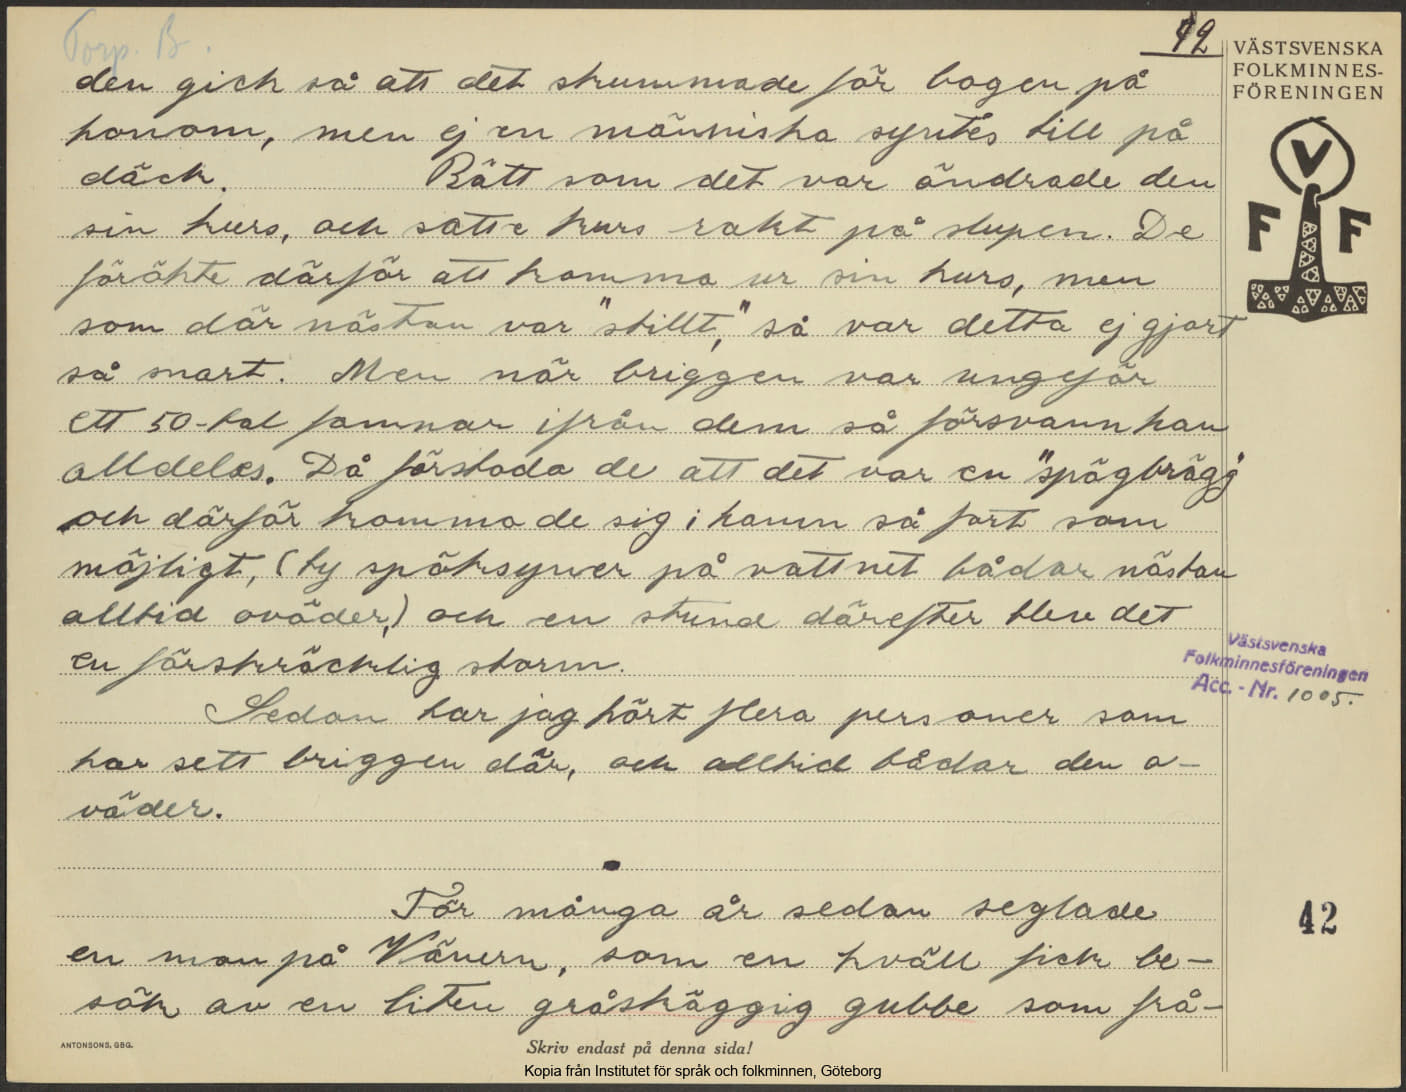 Torp. B.
42
VÄSTSVENSKA
FOLKMINNES-
FÖRENINGEN
V
F F
den gick så att det skummade för bogen på
honom, men ej en människa syntes till på
däck. Rätt som det var ändrade den
sin kurs, och satte kurs rakt på slupen. De
försökte därför att komma ur sin kurs, men
som där nästan var "stillt," så var detta ej gjort
så snart. Men när briggen var ungefär
ett 50-tal famnar ifrån dem så försvann han
alldeles. Då förstodo de att det var en "spögbrägg"
och därför kommo de sig i hamn så fort som
möjligt, (ty spöksyner på vattnet bådar nästan
alltid oväder,) och en stund därefter blev det
en förskräcklig storm.
Västsvenska
Folkminnesföreningen
Acc. - Nr. 1005.
Sedan har jag hört flera personer som
har sett briggen där, och alltid bådar den o-
väder.
För många år sedan seglade
42
en man på Vänern, som en kväll fick be-
sök av en liten gråskäggig gubbe som frå-
ANTONSONS, GBG.
Skriv endast på denna sida!
Kopia från Institutet för språk och folkminnen, Göteborg